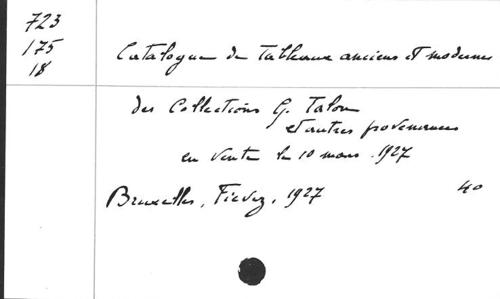 723
175
18
Catalogue de tableaux anciens et modernes
des Collections G. Talon
et autres provenances
en vente le 10 mars 1927
Bruxelles, Fievez, 1927 40